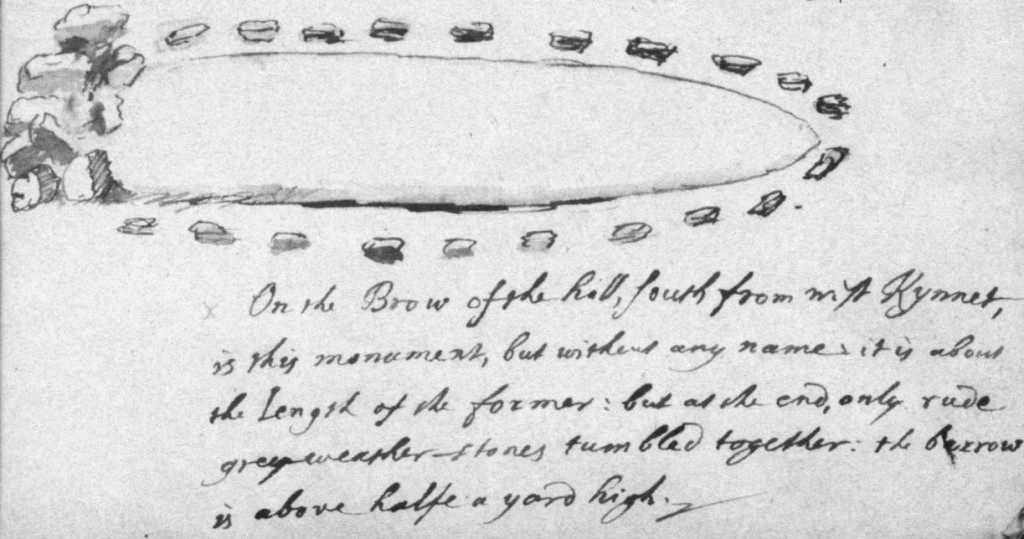 On the Brow of the hill, south from west Kynnet,
is this monument, but without any name: it is about
the Length of the former: but at the end, only rude
grey-weather-stones tumbled together: the barrow
is above halfe a yard high.